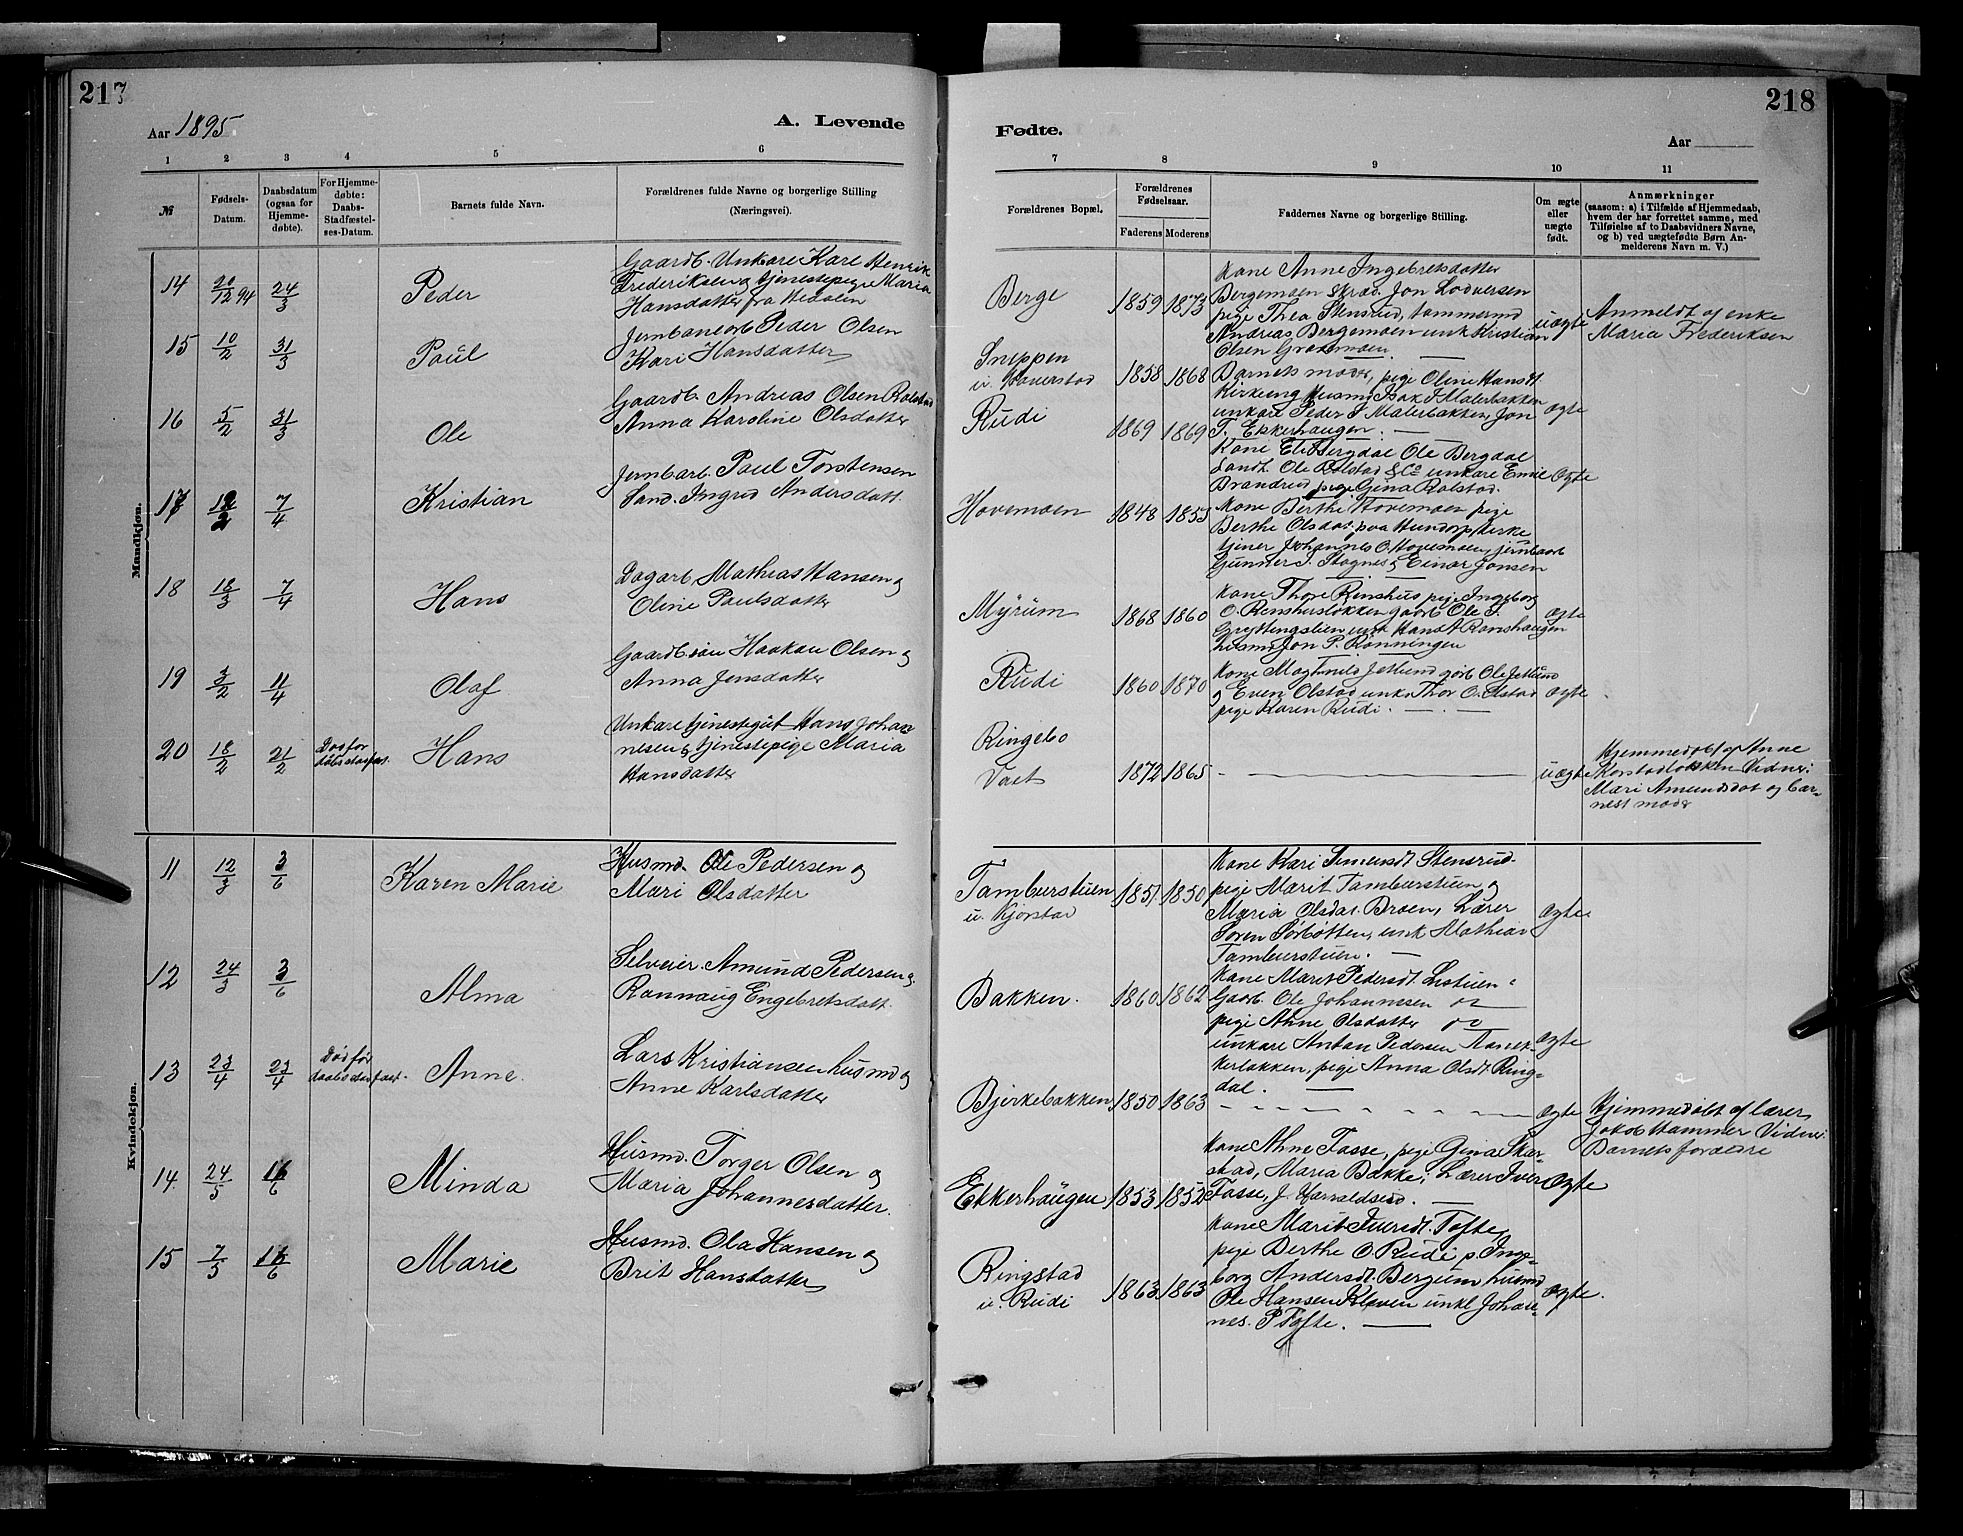 217
Aar 1895.
A. Levende
1 2 3 4 5 6
№
Fødsels-
Datum.
Daabsdatum
(ogsaa for
Hjemme-
døbte).
For Hjemme-
døbte:
Daabs-
Stadfæstel-
ses-Datum.
Barnets fulde Navn.
Forældrenes fulde Navne og borgerlige Stilling
(Næringsvei).
Mandkjøn.
14 20/12 94 24/3 Peder
Gaardb. Unkare Karl Henrik
Frederiksen og tjenestepige Maria
Hansdatter fra Hedalen
15 10/2 31/3 Paul
Jernbanearb Peder Olsen
Kari Hansdatter
16 5/2 31/3 Ole
Gaardb. Andreas Olsen Rolstad
Anna Karoline Olsdatter
17 12/2 7/4 Kristian
Jernbarb. Paul Torstensen
Sand. Ingrid Andersdatt.
18 18/3 7/4 Hans
Dagarb. Mathias Hansen og
Oline Paulsdatter
19 3/2 11/4 Olaf
Gaardb.søn Haakon Olsen og
Anna Jensdatter
20 18/2 21/2 Død før
daabs stadfæst. Hans
Unkare tjenestegut Hans Johan
nesen og tjenestepige Maria
Hansdatter
Kvindekjøn.
11 12/3 3/6 Karen Marie
Husmd. Ole Pedersen og
Mari Olsdatter
12 24/3 3/6 Alma
Selveier. Amund Pedersen og
Rannaug Engebretsdatt.
13 23/4 23/4 Død før
daabs stadfæst. Anne.
Lars Kristiansen husmd og
Anne Karlsdatter
14. 24/5 16/6 Minda
Husmd. Torger Olsen og
Maria Johannesdatter.
15 7/5 16/6 Marie
Husmd. Ola Hansen og
Brit Hansdatter
218
Fødte.
Aar
7 8 9 10 11
Forældrenes Bopæl.
Forældrenes
Fødselsaar.
Faderens Moderens
Faddernes Navne og borgerlige Stilling.
Om ægte
eller
uægte
født.
Anmærkninger
(saasom: a) i Tilfælde af Hjemmedaab,
hvem der har forrettet samme, med
Tilføielse af to Daabsvidners Navne,
og b) ved uægtefødte Børn An-
melderens Navn m. V.)
Berge 1859 1873
Kone Anne Ingebretsdatter
Bergemoen Skræd. Jon Lodversen
pige Thea Stensrud, tømmermd
Andreas Bergemoen unk Kristian
Olsen
uægte
Anmeldt af enke
Maria Frederiksen
Sneppen
u. Haverstad 1858 1868
Barnets moder, pige Oline Hansdt.
Kirkeeng Husmd Isak I Malerbakken
unkare Peder I Malerbakken, Jon
T. Ekkerhaugen.
ægte
Rudi 1869 1869
Kone Eli Bergdal Ole Bergdal
Landh. Ole Rolstad &Co unkare Emil
Brandrud pige Gina Rolstad.
ægte
Hovemoen 1848 1853
Kone Berthe Hovemoen pige
Berthe Olsdat. paa Hundorp Kirke
tjener Johannes O. Hovemoen, jernbarb
Gunner I. Stognes og Einar Jonsen
Myrum 1868 1860
Kone Thore Rinshus pige Ingeborg
O. gaarb Ole I.
unk Hans
husmd Jon P. Rønningen
ægte
Rudi 1860 1870
Kone Magnhild Jetlund gdb. Ole Jetlund
og Even Olstad unk. Thor O. Olstad
pige Karen Rudi.
ægte
Ringebo
Vaat 1872 1865
uægte
Hjemmedøbt af Anne
Korstadløkken Vidner:
Mari Amundsdat og bar-
nest moder
Tamburstuen
u. Kjorstad 1851 1850
Kone Kari Simensdt Stensrud.
pige Marit Tamburstuen og
Maria Olsdat. Broen, Lærer
Søren Sørbotten, unk Mathias
Tamburstuen.
ægte.
Bakken. 1860 1862
Kone Marit Pedersdt Listuen
Gaarb. Ole Johannesen do
pige Anne Olsdatter do
unkare Anton Pedersen
pige Anna Olsdt. Ring-
dal.
ægte
Bjerkebakken 1850 1863
ægte
Hjemmedøbt af lærer
Jakob Hammer Vidner:
Barnets forældre
Ekkerhaugen 1853 1852
Kone Anne Fosse, pige Gina
Maria Bakke, Lærer Iver
Fosse, J. Harraldsrud.
ægte
Ringstad
u. Rudi 1863 1863
Kone Marit Iversdt. Tofte,
pige Berthe O. Rudi p. Inge-
borg Andersdt. Bergum husmd
Ole Hansen Kleven unkl Johan-
nes. P Tofte.
ægte.